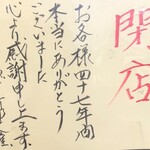 閉店
お客様四十七年間
本当にありがとう
ございました
心より感謝申し上げます